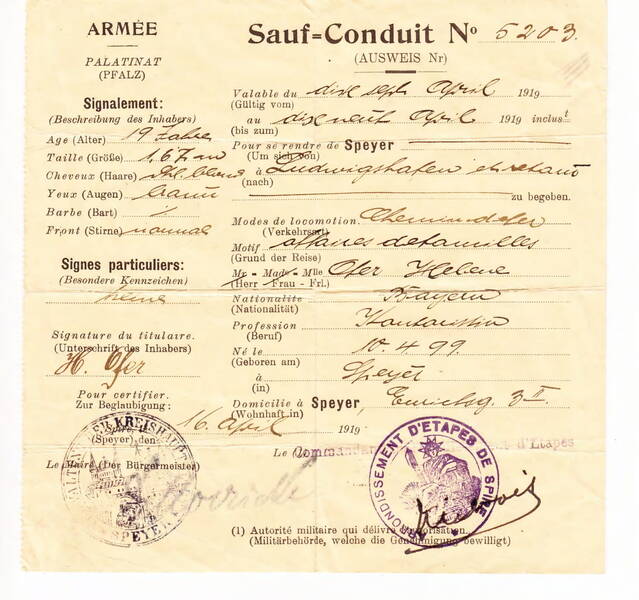 ARMÉE
PALATINAT
(PFALZ)
Signalement:
(Beschreibung des Inhabers)
Age (Alter) 19 Jahre
Taille (Größe) 1,67 m
Cheveux (Haare) dkl. blond
Yeux (Augen) braun
Barbe (Bart) /
Front (Stirne) normal
Signes particuliers:
(Besondere Kennzeichen)
keine
Signature du titulaire.
(Unterschrift des Inhabers)
H. Ofer
Pour certifier.
Zur Beglaubigung:
(Speyer) den 16 April 1919
Le Maire (Der Bürgermeister)
SPEYER
Sauf=Conduit No 5203.
(AUSWEIS Nr)
Valable du dix sept April 1919
(Gültig vom)
au dix neuf April 1919 inclust
(bis zum)
Pour se rendre de Speyer
(Um sich von)
à Ludwigshafen et retour
(nach)
zu begeben.
Modes de locomotion. Chemin de fer
(Verkehrsart)
Motif affaires de familles
(Grund der Reise)
Mr - Mad - Mlle Ofer Helene
(Herr - Frau - Frl.)
Nationalité Bayern
(Nationalität)
Profession Kontoristin
(Beruf)
Né le 10.4.99.
(Geboren am)
à Speyer
(in)
Domicilié à Speyer, 3 II.
(Wohnhaft in)
Le Commandant d'Etapes
ARRONDISSEMENT D'ETAPES DE SPIRE
(1) Autorité militaire qui délivre l'autorisation.
(Militärbehörde, welche die Genehmigung bewilligt)